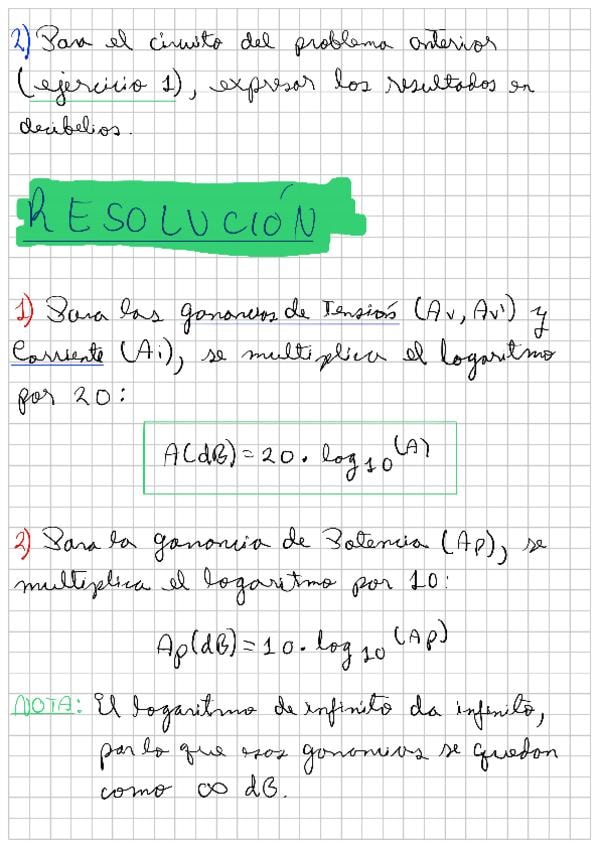 2) Para el circuito del problema anterior
(ejercicio 1), expresar los resultados en
decibelios.
RESOLUCIÓN
1) Para las ganancias de Tensión (Av, Av') y
Corriente (Ai), se multiplica el logaritmo
por 20:
A(dB) = 20 . log10 (A)
2) Para la ganancia de Potencia (Ap), se
multiplica el logaritmo por 10:
Ap(dB) = 10 . log10 (Ap)
NOTA: El logaritmo de infinito da infinito,
por lo que esas ganancias se quedan
como ∞ dB.